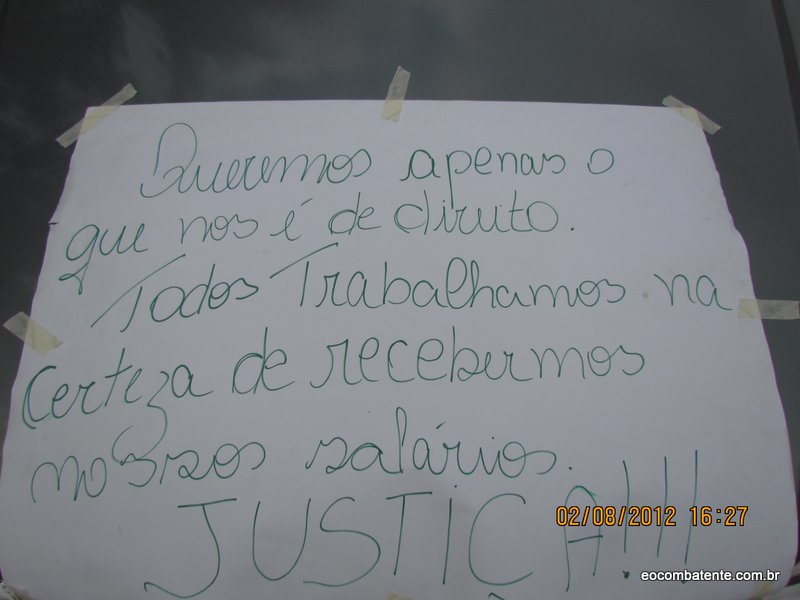 Queremos apenas o
que nos é de direito.
Todos Trabalhamos na
certeza de recebermos
nossos salários.
JUSTIÇA!!!!
02/08/2012 16:27
eocombatente.com.br